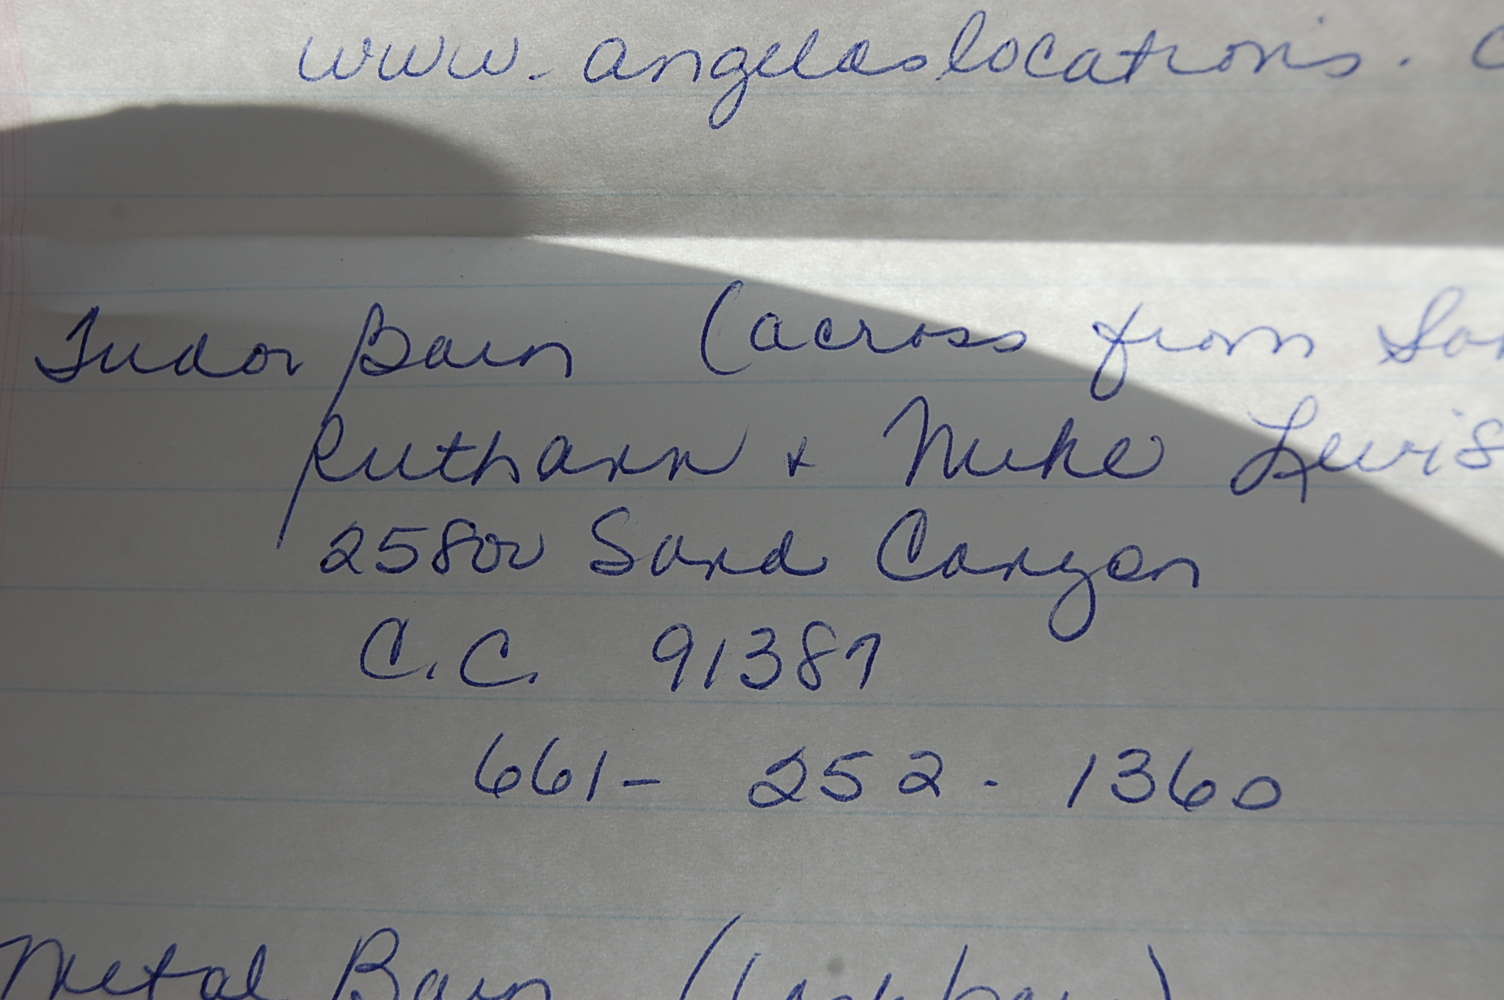 www.angelaslocations. c
Tudor Barn (across from
Ruthann + Mike Lewis
25800 Sand Canyon
C.C. 91387
661- 252 - 1360
Metal Barn